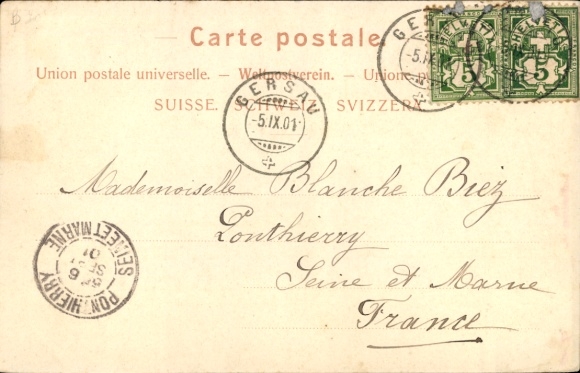 Carte postale.
Union postale universelle. — Weltpostverein. — Unione
SUISSE. SCHWEIZ. SVIZZERA.
GERSAU
-5.IX.01
GERSAU
-5.IX
HELVETIA HELVETIA
5 5
Mademoiselle Blanche Biez
Ponthierry
Seine et Marne
France
PONTHIERRY
SEINE ET MARNE
6
01